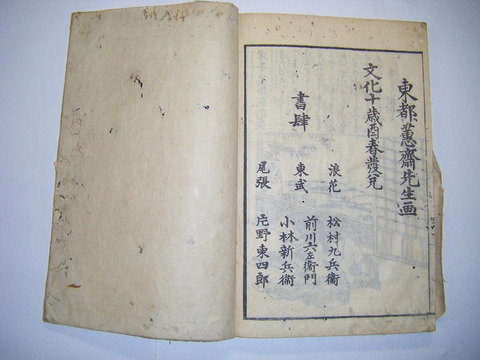 東都蕙齋先生画
文化十歳酉春發兌
書肆
浪花 松村九兵衛
東武 前川六左衛門
小林新兵衛
尾張 片野東四郎